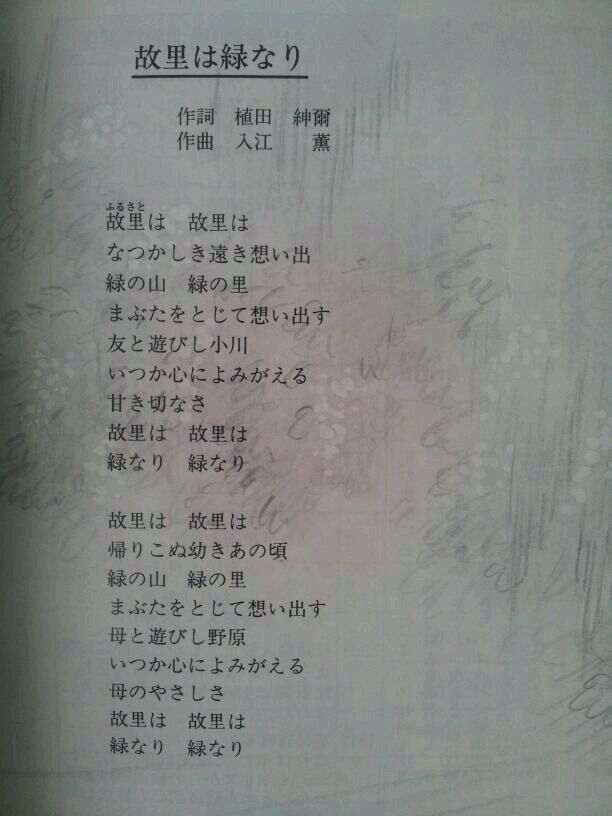 故里は緑なり
作詞 植田 紳爾
作曲 入江 薫
ふるさと
故里は 故里は
なつかしき遠き想い出
緑の山 緑の里
まぶたをとじて想い出す
友と遊びし小川
いつか心によみがえる
甘き切なさ
故里は 故里は
緑なり 緑なり
故里は 故里は
帰りこぬ幼きあの頃
緑の山 緑の里
まぶたをとじて想い出す
母と遊びし野原
いつか心によみがえる
母のやさしさ
故里は 故里は
緑なり 緑なり